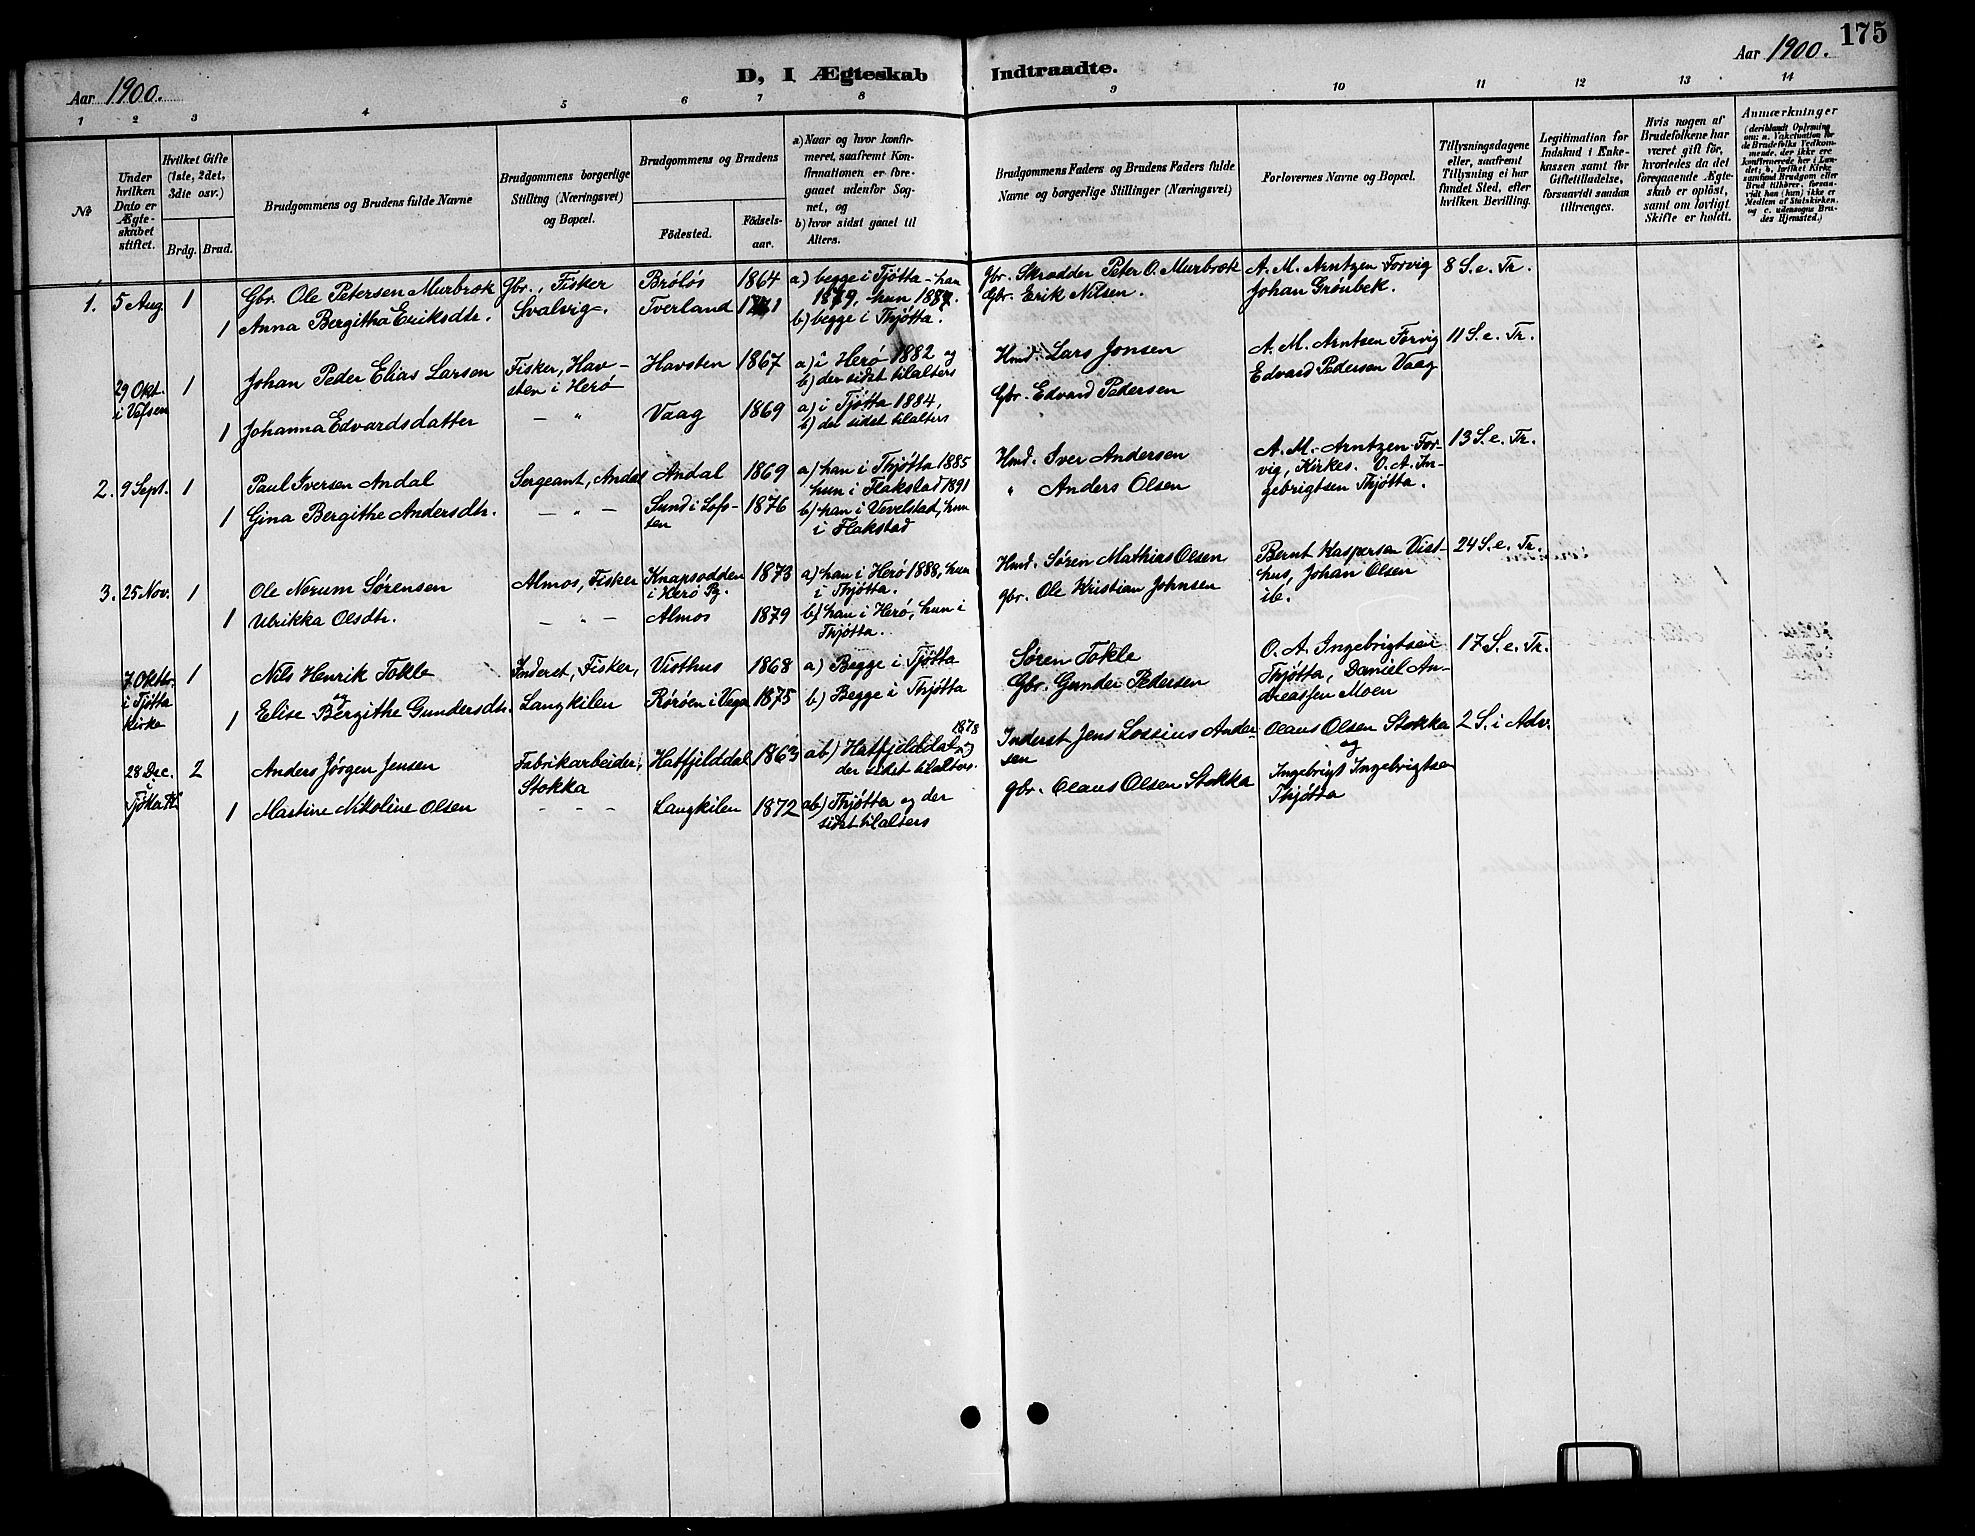 175
Aar 1900. D, I Ægteskab Indtraadte. Aar 1900.
1 2 3 4 5 6 7 8 9 10 11 12 13 14
No
Under hvilken Dato er Ægteskabet stiftet.
Hvilket Gifte (1ste, 2det, 3die osv.)
Brdg. Brud.
Brudgommens og Brudens fulde Navne
Brudgommens borgerlige Stilling (Næringsvei) og Bopæl.
Brudgommens og Brudens
Födested. Födselsaar.
a) Naar og hvor konfirmeret, saafremt Konfirmationen er foregaaet udenfor Sognet, og
b) hvor sidst gaaet til Alters.
Brudgommens Faders og Brudens Faders fulde Navne og borgerlige Stillinger (Næringsvei)
Forlovernes Navne og Bopæl.
Tillysningsdagene eller, saafremt Tillysning ei har fundet Sted, efter hvilken Bevilling.
Legitimation for Indskud i Enkekassen samt for Giftetilladelse, forsaavidt saadan tiltrænges.
Hvis nogen af Brudefolkene har været gift för, hvorledes da det foregaaende Ægteskab er oplöst, samt om lovligt Skifte er holdt.
Anmærkninger
(deriblandt Oplysning om: a. Vakcination for de Brudefolks Vedkommende, der ikke ere konfirmerede her i Landet; b. hvilket Kirkesamfund Brudgom eller Brud tilhører, forsaavidt han (hun) ikke er Medlem af Statskirken, og c. udensogns Brudes Hjemsted.)
1. 5 Aug. 1 Gbr. Ole Petersen Murbrok Gbr., Fisker Brøløs 1864 a) begge i Tjøtta - han 1879, hun 1887. Gbr. Skrædder Peter O. Murbrok A. M. Arntzen Forvig 8 S. e. Tr.
1 Anna Bergitha Eriksdtr. Svalvig. Tverland 1871 b) begge i Thjøtta. Gbr. Erik Nilsen. Johan Grönbek.
29 Okt. i Vefsen 1 Johan Peder Elias Larsen Fisker, Havsten i Herø Havsten 1867 a) i Herø 1882 og b) der sidst tilalters Hmd. Lars Jonsen A. M. Arntzen Forvig 11 S. e. Tr.
1 Johanna Edvardsdatter — " Vaag 1869 a) i Tjøtta 1884, b) der sidst tilalters Gbr. Edvard Pedersen Edvard Pedersen Vaag
2. 9 Sept. 1 Paul Iversen Andal Sergeant, Andal Andal 1869 a) han i Thjøtta 1885 hun i Flakstad 1891 Hmd. Iver Andersen A. M. Arntzen Forvig, Kirkes. O. A. Ingebrigtsen Thjøtta. 13 S. e. Tr.
1 Gina Bergithe Andersdtr. — " — Sund i Lofoten 1876 b) han i Vevelstad, hun i Flakstad " Anders Olsen
3. 25 Nov. 1 Ole Norum Sørensen Almos, Fisker Knapsodden i Herø Pg. 1873 a) han i Herø 1888, hun i Thjøtta. Hmd. Søren Mathias Olsen Bernt Kaspersen Visthus, Johan Olsen ib. 24 S. e. Tr.
1 Ulrikka Olsdtr. — " — Almos 1879 b) han i Herø, hun i Thjøtta. Gbr. Ole Kristian Johnsen
7 Oktbr. i Tjøtta Kirke 1 Nils Henrik Tokle Inderst, Fisker, Visthus 1868 a) Begge i Tjøtta Søren Tokle O. A. Ingebrigtsen Thjøtta, Daniel Andreassen Moen 17 S. e. Tr.
og
1 Elise Bergithe Gundersdtr. Langkilen Rørøen i Vega 1875 b) Begge i Thjøtta Gbr. Gunder Pedersen
28 Dec. i Tjøtta K. 2 Anders Jørgen Jensen Fabrikarbeider, Stokka Hatfjelddal 1863 ab) Hatfjelddal 1878 og der sidst tilalters. Inderst Jens Lossius Andersen Olaus Olsen Stokka og Ingebrigt Ingebrigtsen Thjøtta 2 S. i Adv.
1 Martine Nikoline Olsen — — — Langkilen 1872 ab) Thjøtta og der sidst tilalters Gbr. Olaus Olsen Stokka